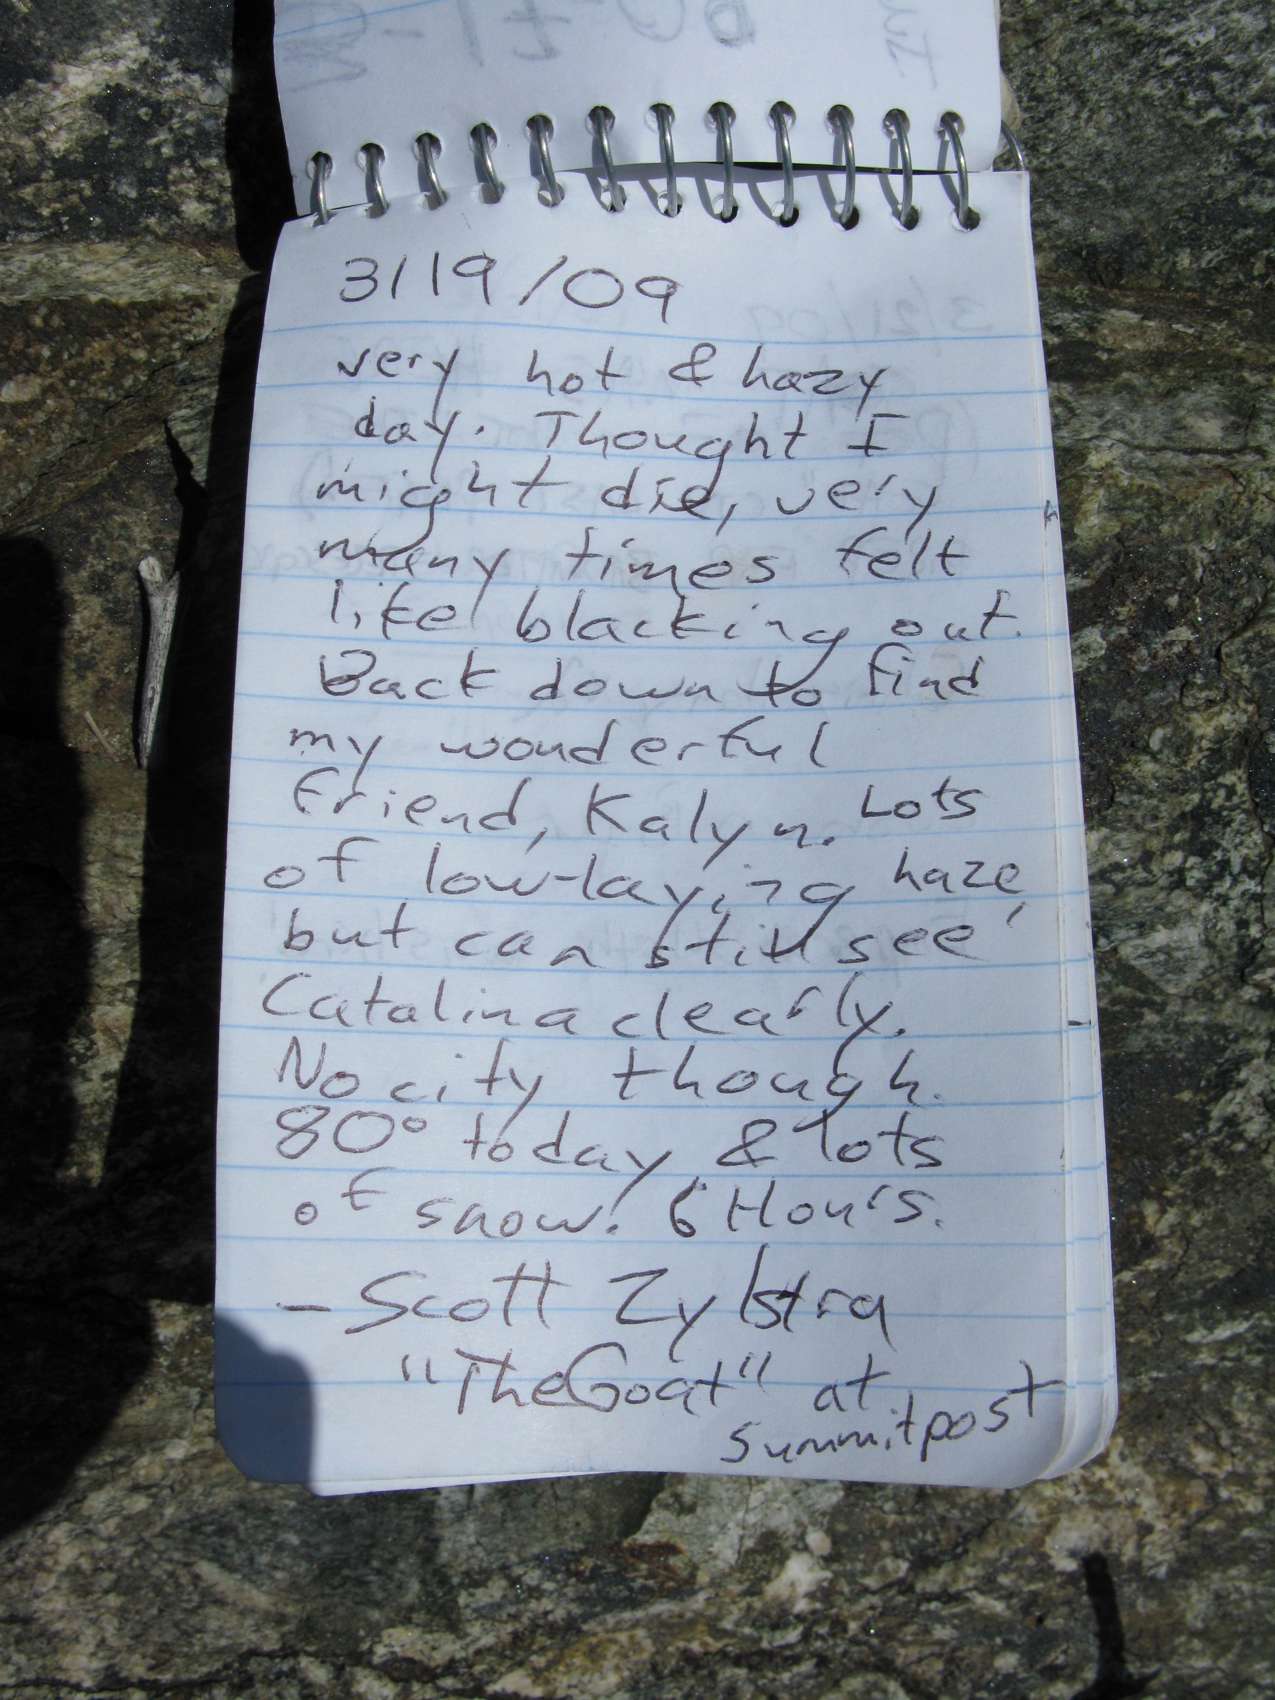 3/19/09
very hot & hazy
day. Thought I
might die, very
many times felt
like blacking out.
Back down to find
my wonderful
friend, Kalyn. Lots
of low-laying haze,
but can still see
Catalina clearly.
No city though.
80° today & lots
of snow! 6 Hours.
- Scott Zylstra
"TheGoat" at
summitpost